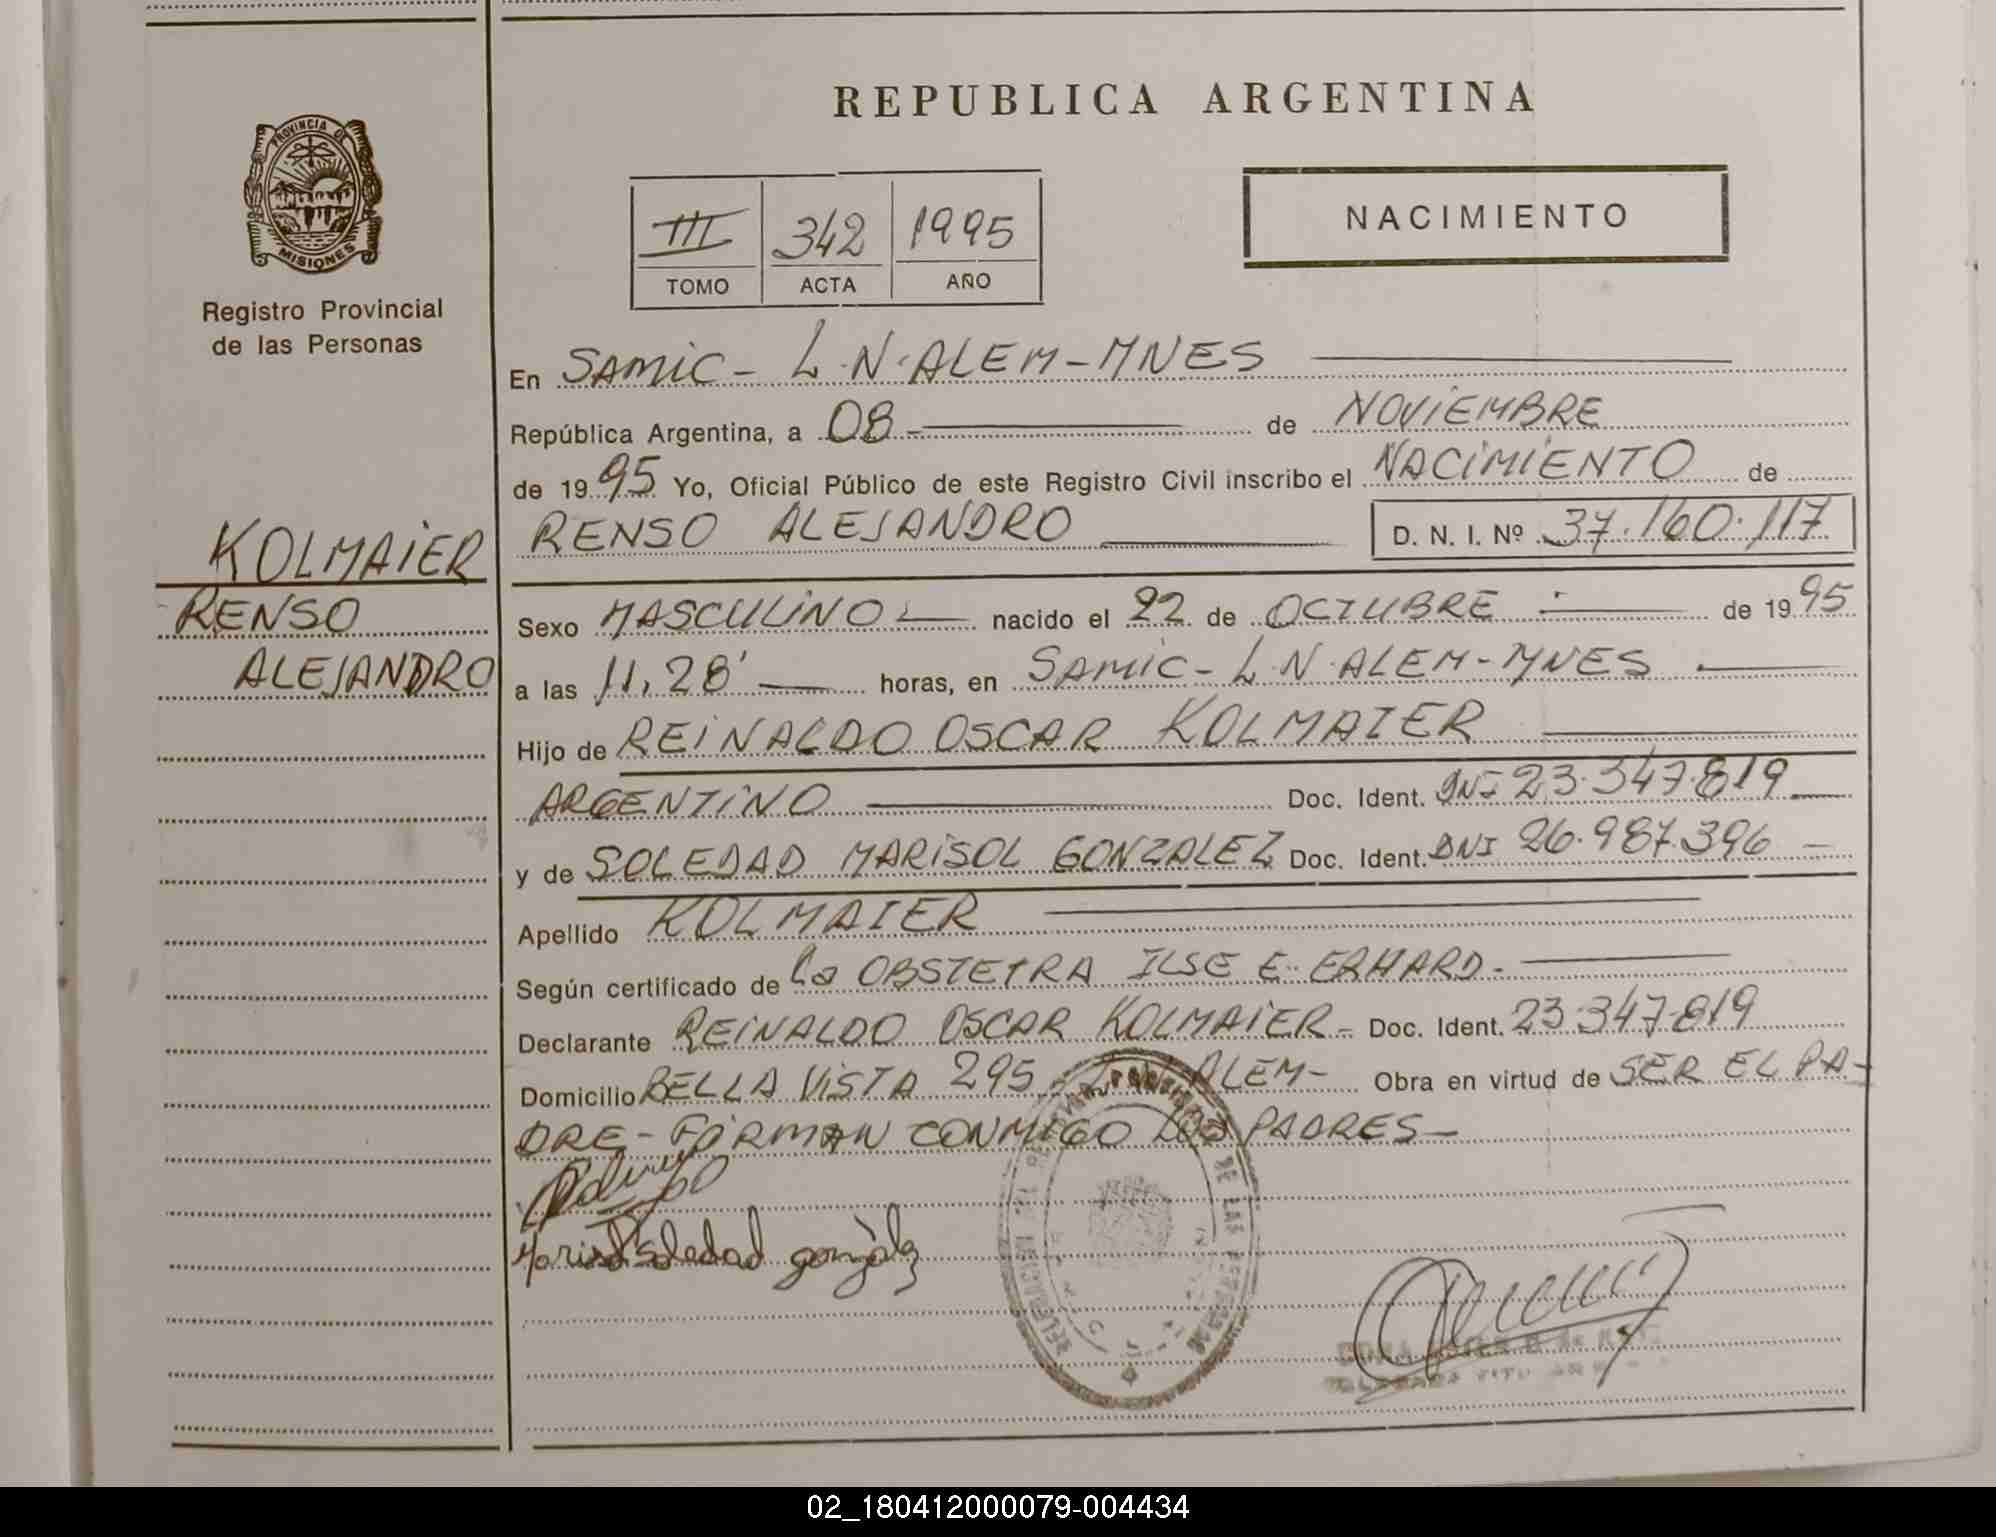 REPUBLICA ARGENTINA
PROVINCIA DE
MISIONES
Registro Provincial
de las Personas
III 342 1995
TOMO ACTA AÑO
NACIMIENTO
En SAMIC - L.N. ALEM - MNES
República Argentina, a 08 de NOVIEMBRE
de 1995 Yo, Oficial Público de este Registro Civil inscribo el NACIMIENTO de
RENSO ALEJANDRO D. N. I. Nº 37.160.117
KOLMAIER
RENSO
ALEJANDRO
Sexo MASCULINO nacido el 22 de OCTUBRE de 1995
a las 11,28' horas, en SAMIC - L.N. ALEM - MNES
Hijo de REINALDO OSCAR KOLMAIER
ARGENTINO Doc. Ident. DNI 23.347.819
y de SOLEDAD MARISOL GONZALEZ Doc. Ident. DNI 26.987.396
Apellido KOLMAIER
Según certificado de la OBSTETRA ILSE E. ERHARD.
Declarante REINALDO OSCAR KOLMAIER - Doc. Ident. 23.347.819
Domicilio BELLA VISTA 295 ALEM - Obra en virtud de SER EL PA-
DRE - FIRMAN CONMIGO LOS PADRES -
Marisol Soledad gonzález
DE LAS
02_180412000079-004434